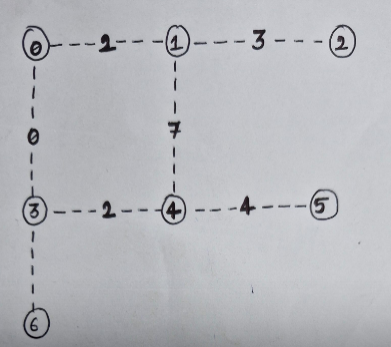 0 2 1 3 2
0 7
3 2 4 4 5
6